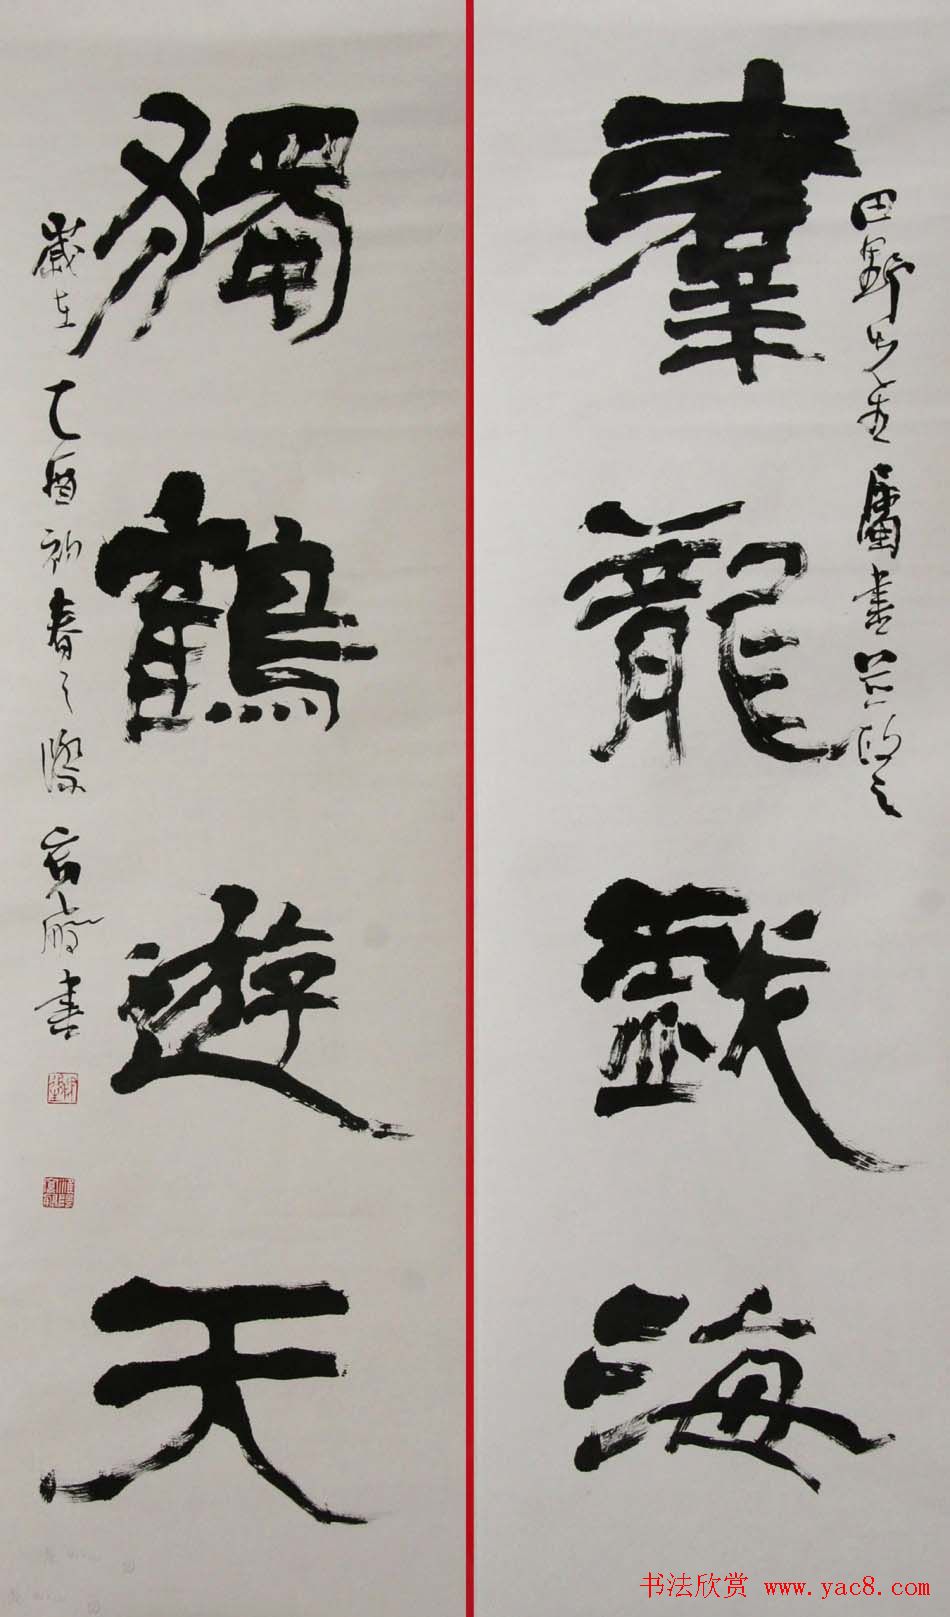 羣龍戲海
田野先生屬書
獨鶴遊天
歲在乙酉初春之際
書
书法欣赏 www.yac8.com